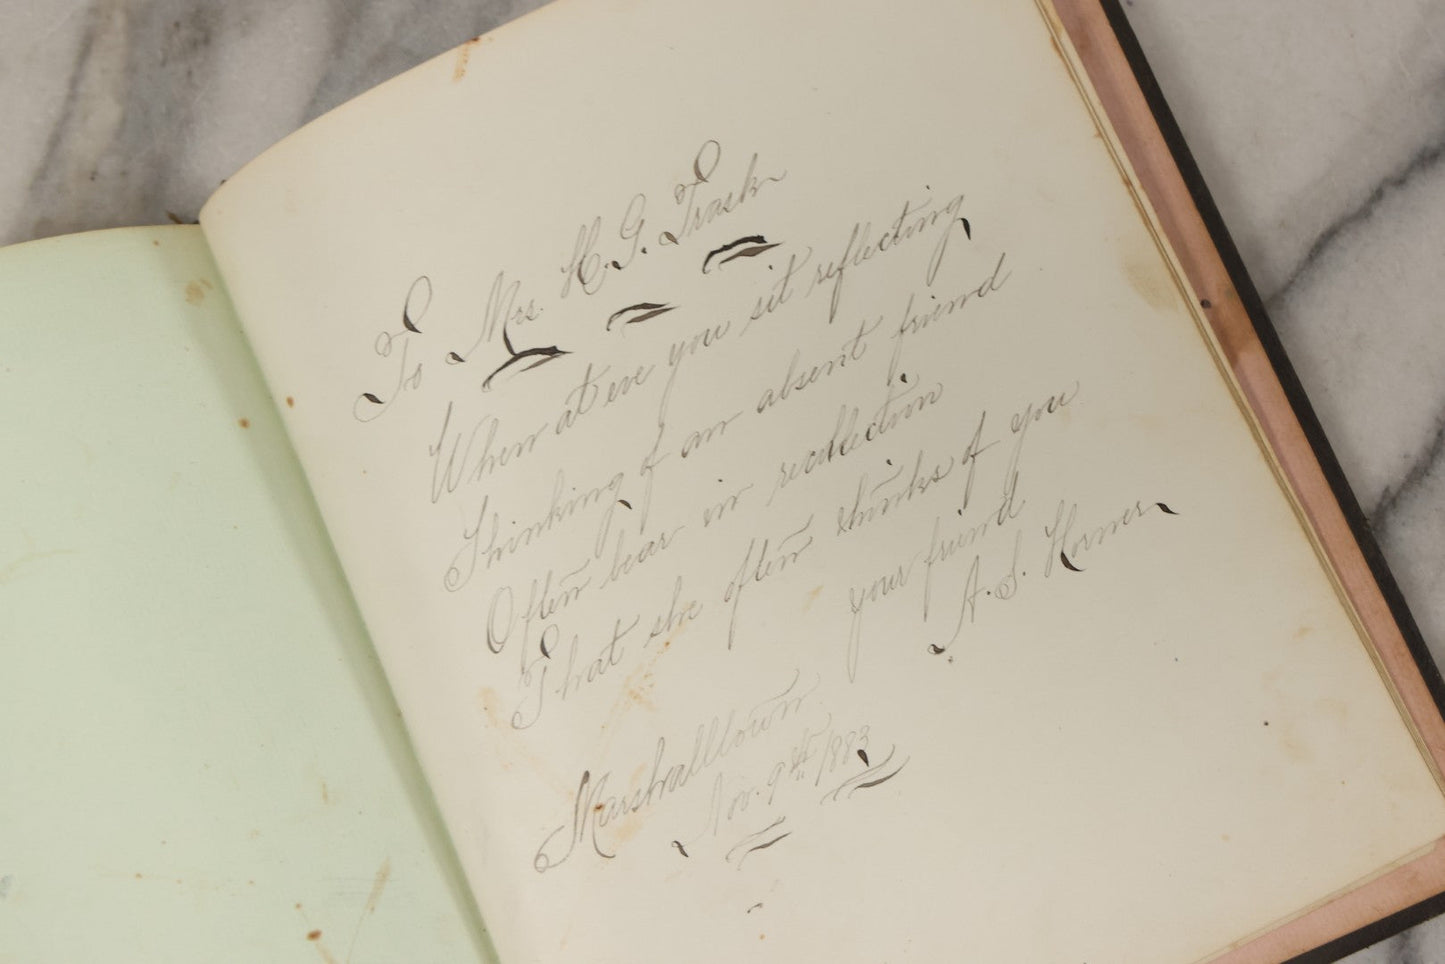 To Mrs. H. G. Trask
When at eve you sit reflecting
Thinking of an absent friend
Often bear in recollection
That she often thinks of you
your friend
A. S. Horner
Marshalltown
Nov. 9th 1883